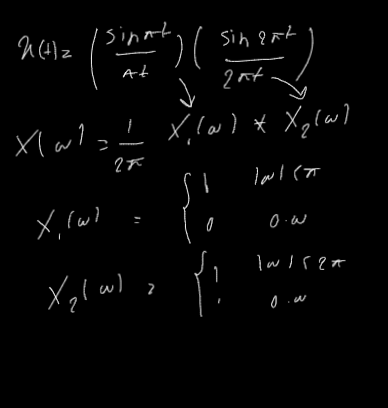 x(t) = (sin πt / πt) (sin 2πt / 2πt)
X(ω) = 1/2π X₁(ω) * X₂(ω)
X₁(ω) = { 1 |ω| < π
0 o.w
X₂(ω) = { 1 |ω| < 2π
. o.w